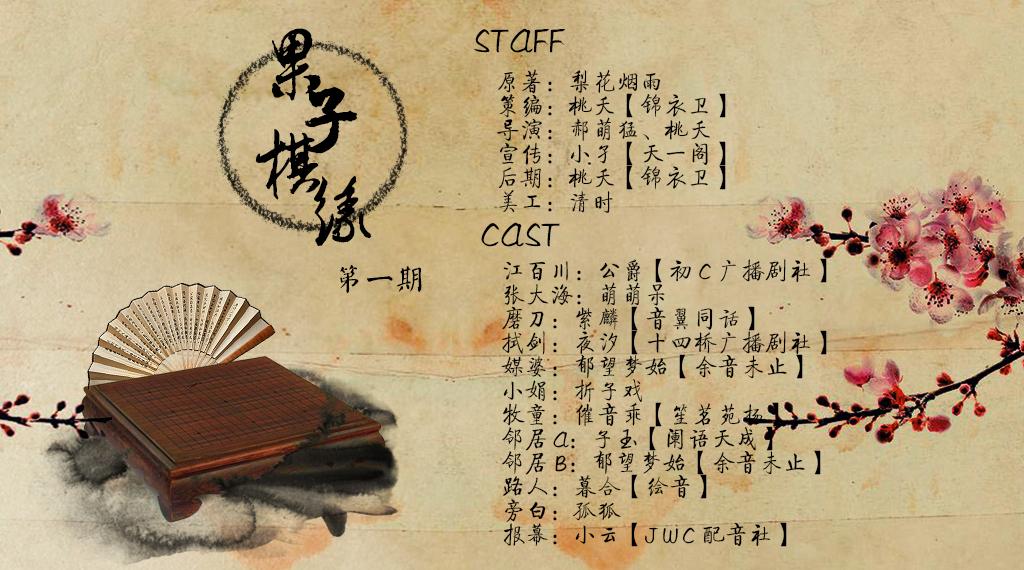 果子棋缘
第一期
STAFF
原著：梨花烟雨
策编：桃夭【锦衣卫】
导演：郝萌猛、桃夭
宣传：小孑【天一阁】
后期：桃夭【锦衣卫】
美工：清时
CAST
江百川：公爵【初C广播剧社】
张大海：萌萌呆
磨刀：紫麟【音翼同话】
拭剑：夜汐【十四桥广播剧社】
媒婆：郁望梦始【余音未止】
小娟：折子戏
牧童：催音乘【笙茗苑扬】
邻居A：子玉【阑语天成】
邻居B：郁望梦始【余音未止】
路人：暮合【绘音】
旁白：狐狐
报幕：小云【JWC配音社】